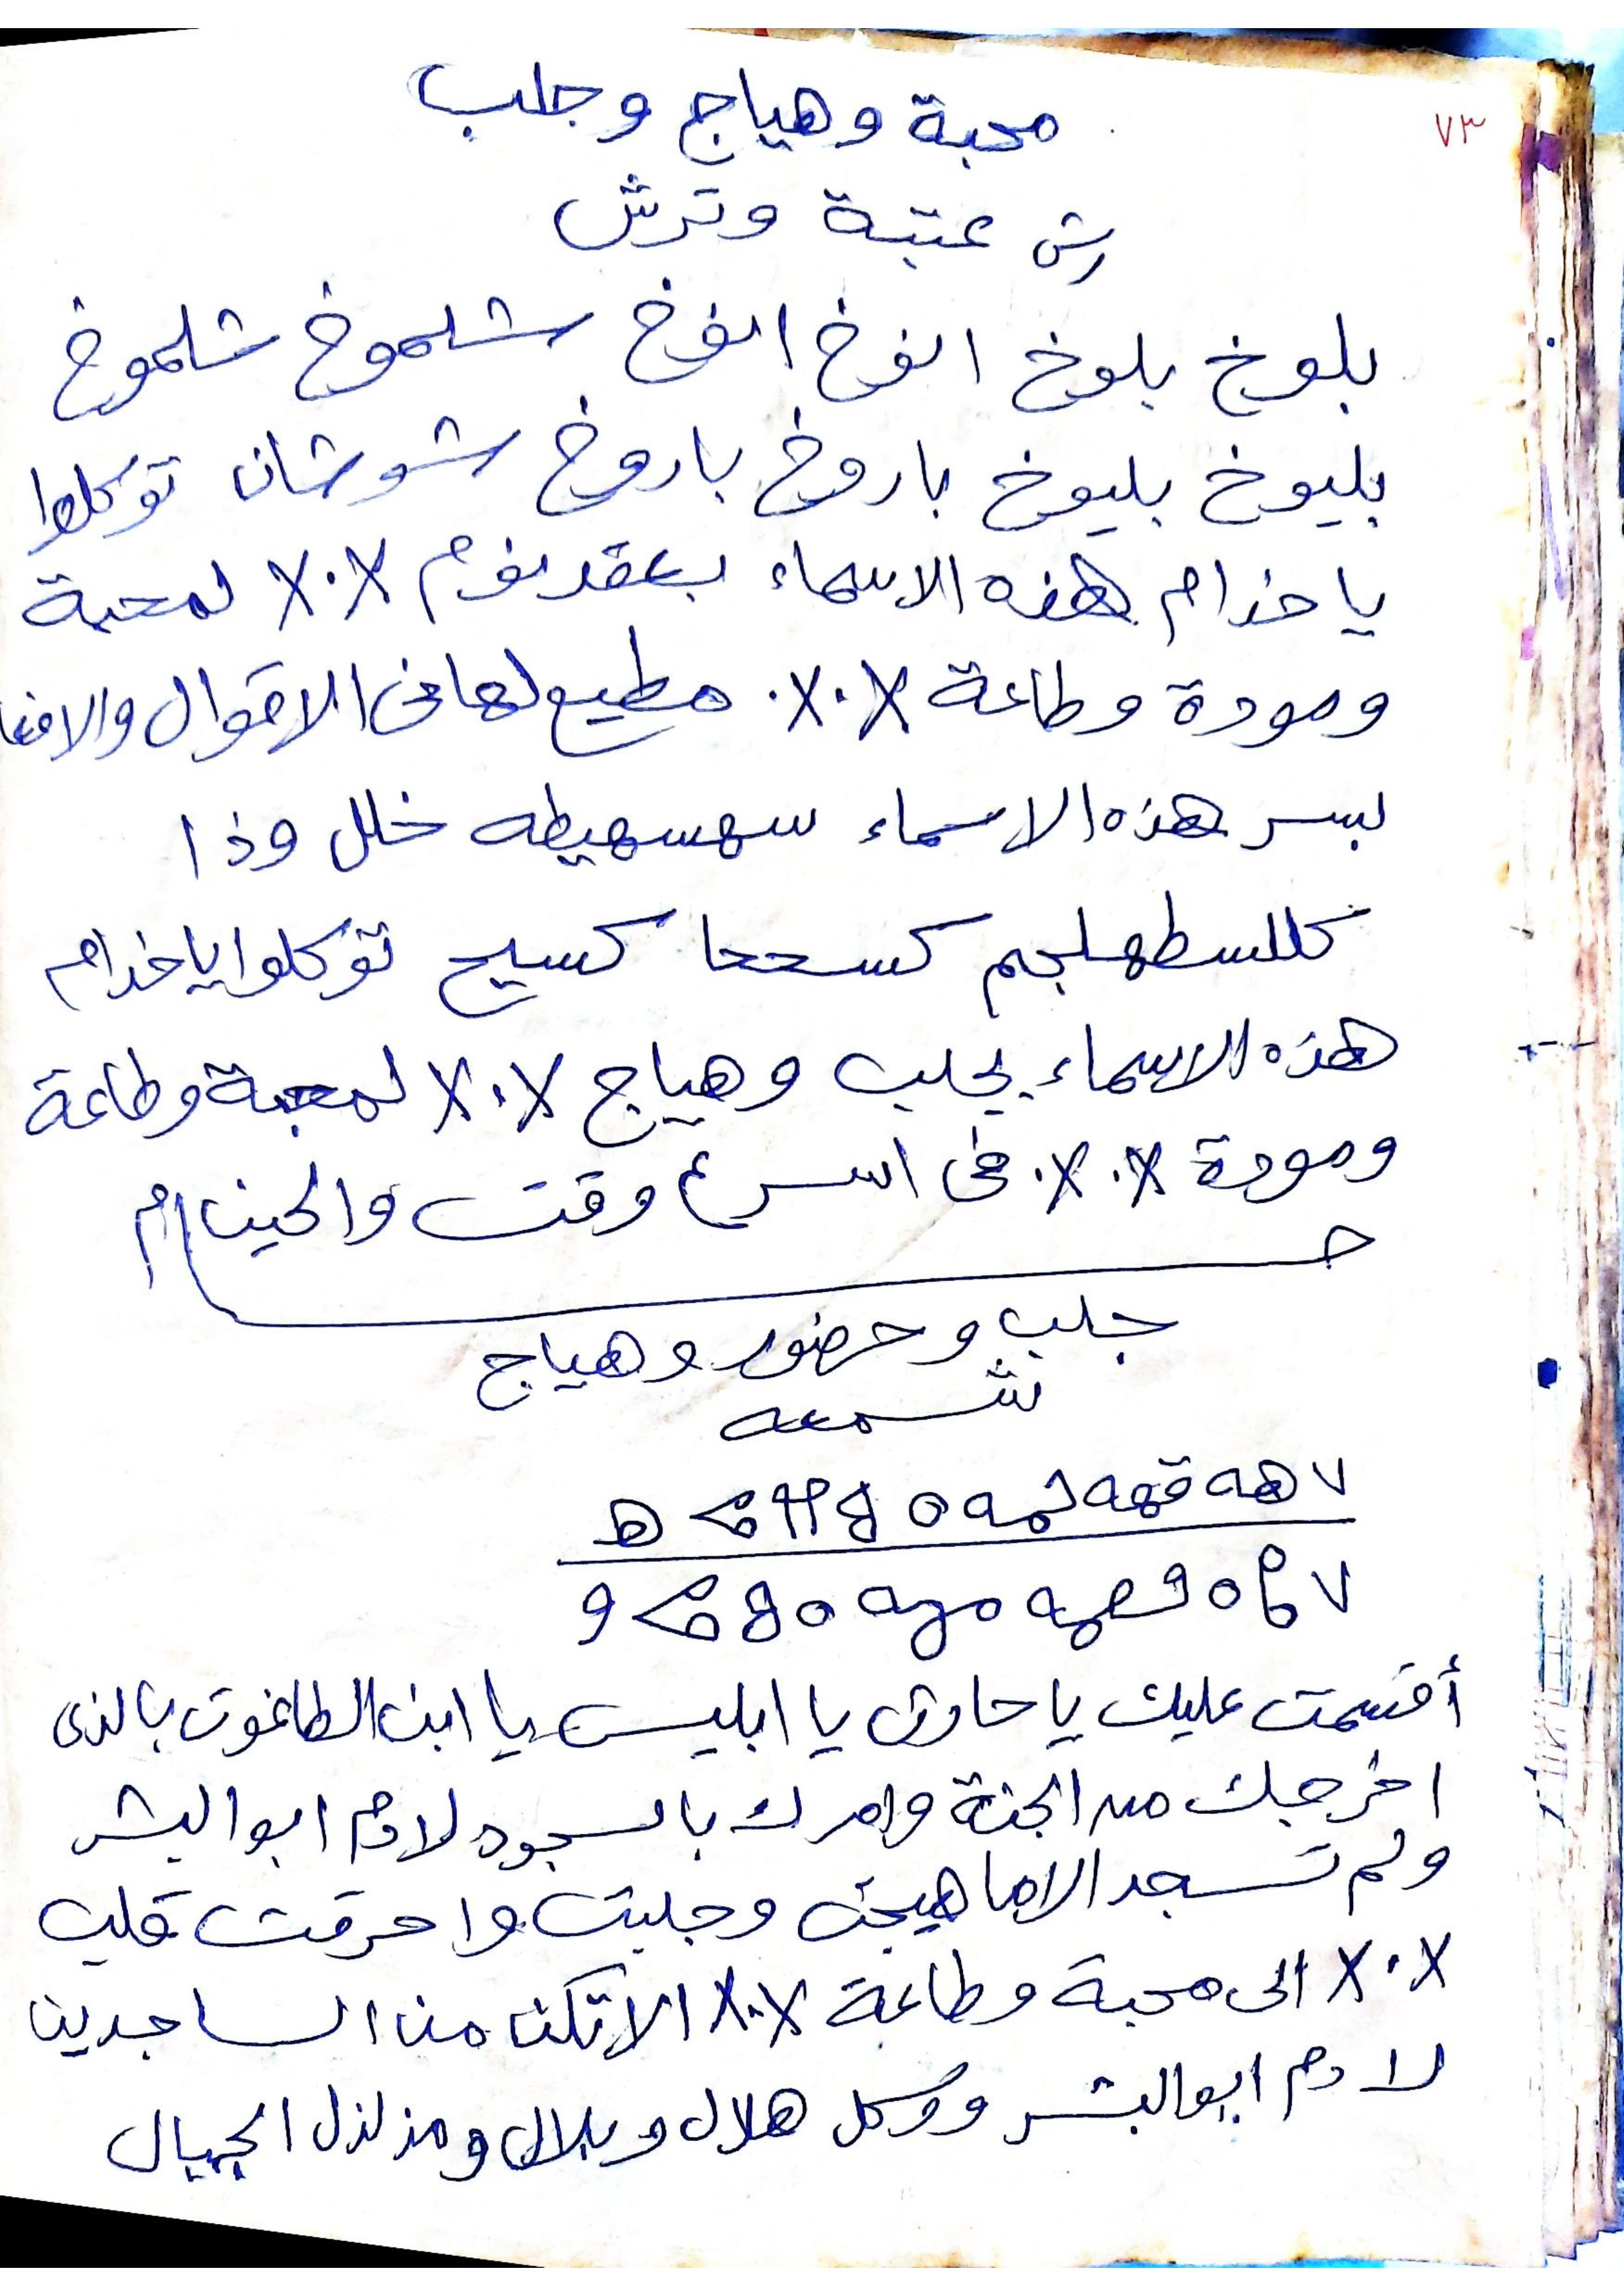 ٧٣
محبة وهياج وجلب
رش عتبة وترش
بلوخ بلوخ انوخ انوخ شلموخ شلموخ
بليوخ بليوخ باروخ باروخ شوشان توكلوا
ياخدام هذه الاسماء بعقد نوم X.X لمحبة
ومودة وطاعة X.X. مطيع لها فى الاقوال والافعا
بسر هذه الاسماء سهسهيطه خلل وذا
كللسطهلجم كسححا كسيح توكلوا ياخدام
هذه الاسماء بجلب وهياج X.X لمحبة وطاعة
ومودة X.X. فى اسرع وقت والحين ام
جلب وحضور وهياج
شمعه
أقسمت عليك ياحارق يا ابليس يا ابن الطاغوت بالذى
اخرجك من الجنة وامرك بالسجود لادم ابوالبشر
ولم تسجد الاما هيجت وجلبت واحرقت قلب
X.X الى محبة وطاعة X.X الاتكن من الساجدين
لادم ابوالبشر ووكل هلال وبلال ومزلزل الجبال